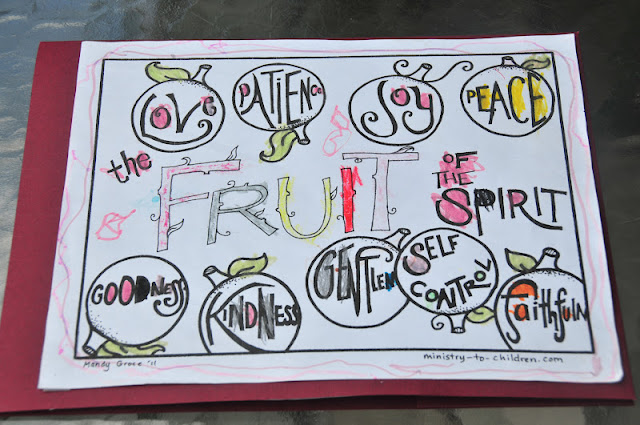 LOVE PATIENCE JOY PEACE
the FRUIT OF THE SPIRIT
GOODNESS KINDNESS GENTLEN SELF CONTROL faithfuln
Mandy Groce '11 ministry-to-children.com